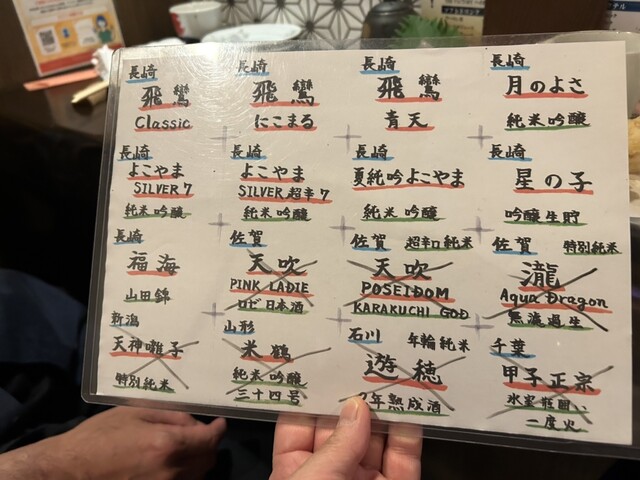 長崎
飛鸞
Classic
長崎
飛鸞
にこまる
長崎
飛鸞
青天
長崎
月のよさ
純米吟醸
長崎
よこやま
SILVER7
純米吟醸
長崎
よこやま
SILVER超辛7
純米吟醸
長崎
夏純吟よこやま
純米吟醸
長崎
星の子
吟醸生貯
長崎
福海
山田錦
佐賀
天吹
PINK LADIE
ロゼ日本酒
佐賀 超辛口純米
天吹
POSEIDOM
KARAKUCHI GOD
佐賀 特別純米
瀧
Aqua Dragon
無濾過生
新潟
天神囃子
特別純米
山形
米鶴
純米吟醸
三十四号
石川 年輪純米
遊穂
年熟成酒
千葉
甲子正宗
氷室荘囲い
一度火